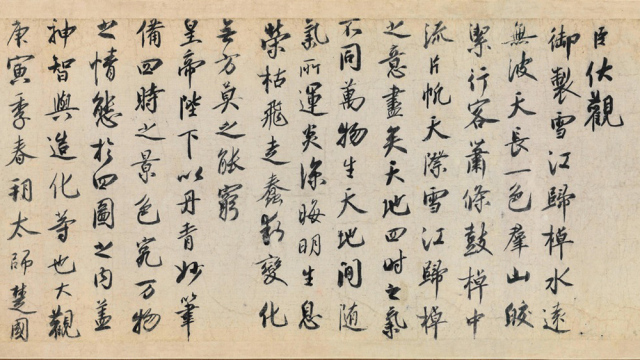 臣伏觀
御製雪江歸棹水遠
無波天長一色羣山皎
潔行客蕭條鼓棹中
流片帆天際雪江歸棹
之意盡矣天地四時之氣
不同萬物生天地間隨
氣所運炎涼晦明生息
榮枯飛走蠢動變化
無方莫之能窮
皇帝陛下以丹青妙筆
備四時之景色究萬物
之情態於四圖之內蓋
神智與造化等也大觀
庚寅季春朔太師楚國